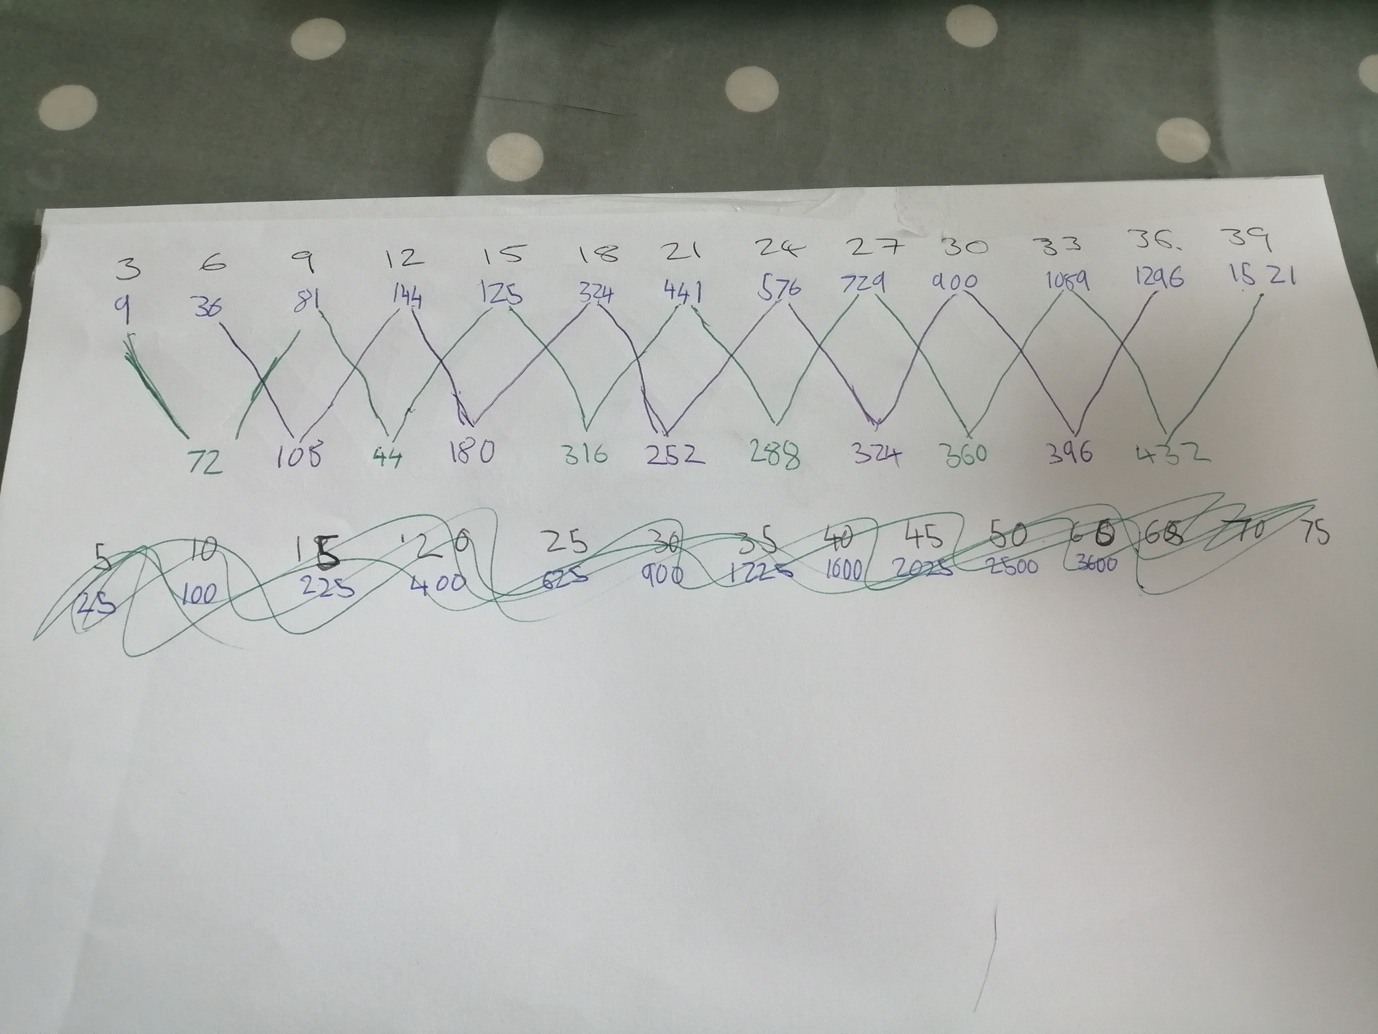 3 6 9 12 15 18 21 24 27 30 33 36. 39
9 36 81 144 125 324 441 576 729 900 1089 1296 1521
72 108 44 180 316 252 288 324 360 396 432
5 10 15 20 25 30 35 40 45 50 60 65 70 75
25 100 225 400 625 900 1225 1600 2025 2500 3600